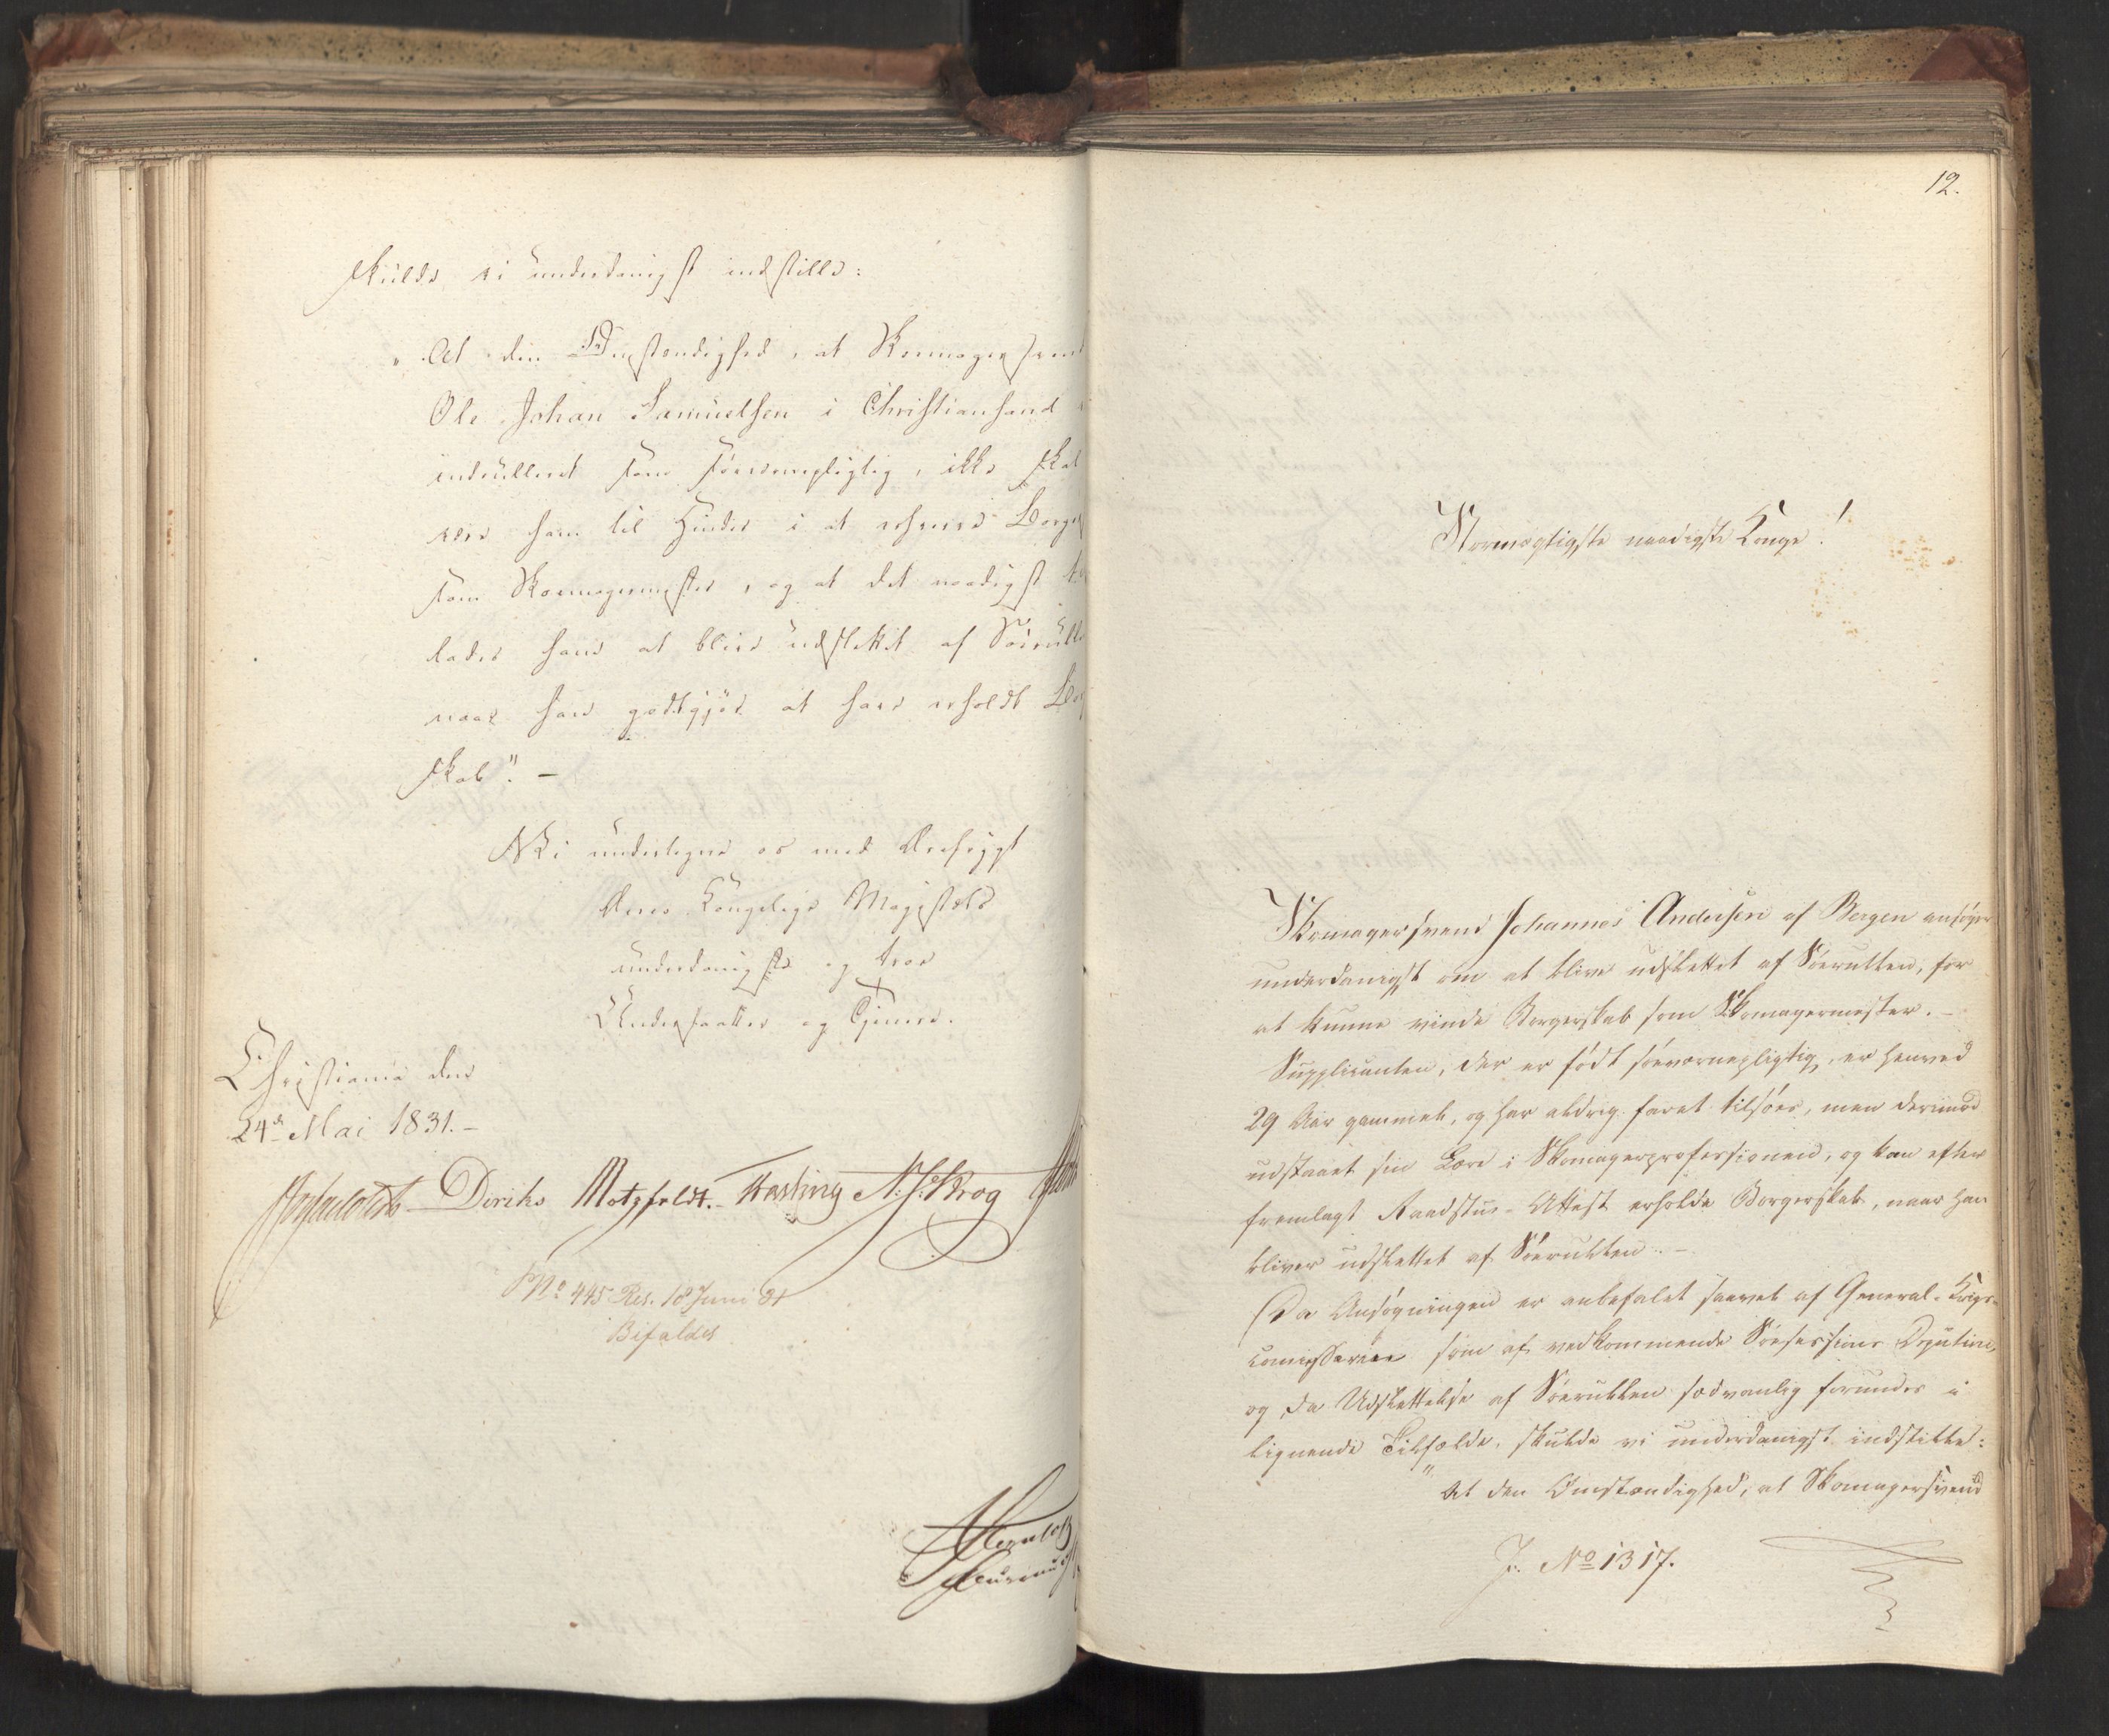 skulde vi underdanigst indstille:
„At den Omstændighed, at Skomagersvend
Ole Johan Samuelsen i Christiansand
indrulleret som søeværnepligtig, ikke skal
være ham til Hinder i at erhverve Borger
som Skomagermester, og at det naadigst
lades ham at blive udslettet af Søerulle
naar han godtgjør at have erholdt Bor
skab". –
Vi undertegne os med Ærefrygt
Deres Kongelige Majestæts
underdanigste og troe
Undersaatter og Tjenere.
Christiania den
24de Mai 1831. –
Diriks Motzfeldt. Fasting N: J: Krog
No 445 Res. 18 Juni 31
Bifaldes
12.
Stormægtigste naadigste Konge!
Skomagersvend Johannes Andersen af Bergen ansøger
underdanigst om at blive udslettet af Søerullen, for
at kunne vinde Borgerskab som Skomagermester. –
Supplicanten, der er født søeværnepligtig, er henved
29 Aar gammel, og har aldrig faret tilsøes, men derimod
udstaaet sin Lære i Skomagerprofessionen, og kan efter
fremlagt Raadstue-Attest erholde Borgerskab, naar han
bliver udslettet af Søerullen. –
Da Ansøgningen er anbefalet saavel af General-Krigs-
commissairen som af vedkommende Søesessions Deputerede,
og da Udslettelse af Søerullen sædvanlig forundes i
lignende Tilfælde, skulde vi underdanigst indstille:
"At den Omstændighed, at Skomagersvend
J. No 1317.